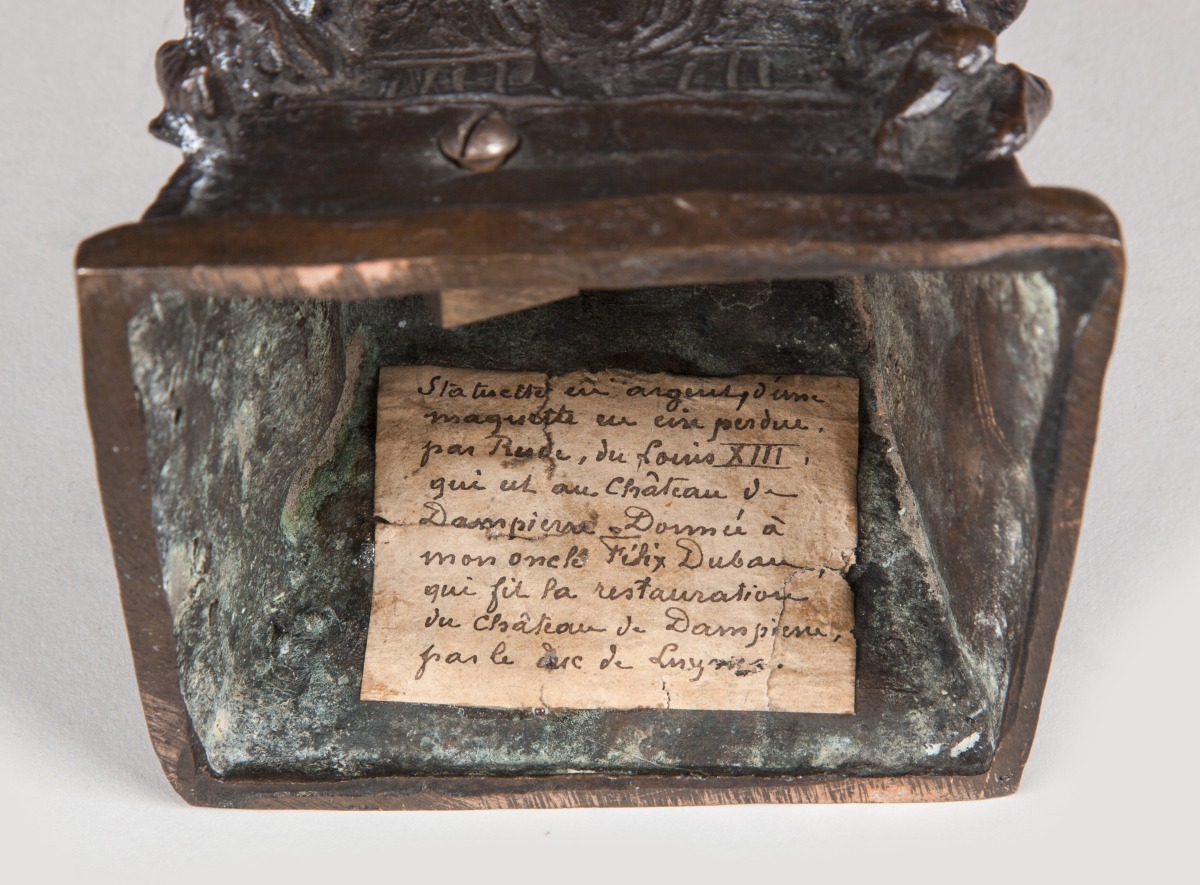 Statuette en argent, d'une
maquette en cire perdue,
par Rude, du Louis XIII,
qui est au Château de
Dampierre. Donnée à
mon oncle Félix Duban,
qui fit la restauration
du Château de Dampierre,
par le duc de Luynes.